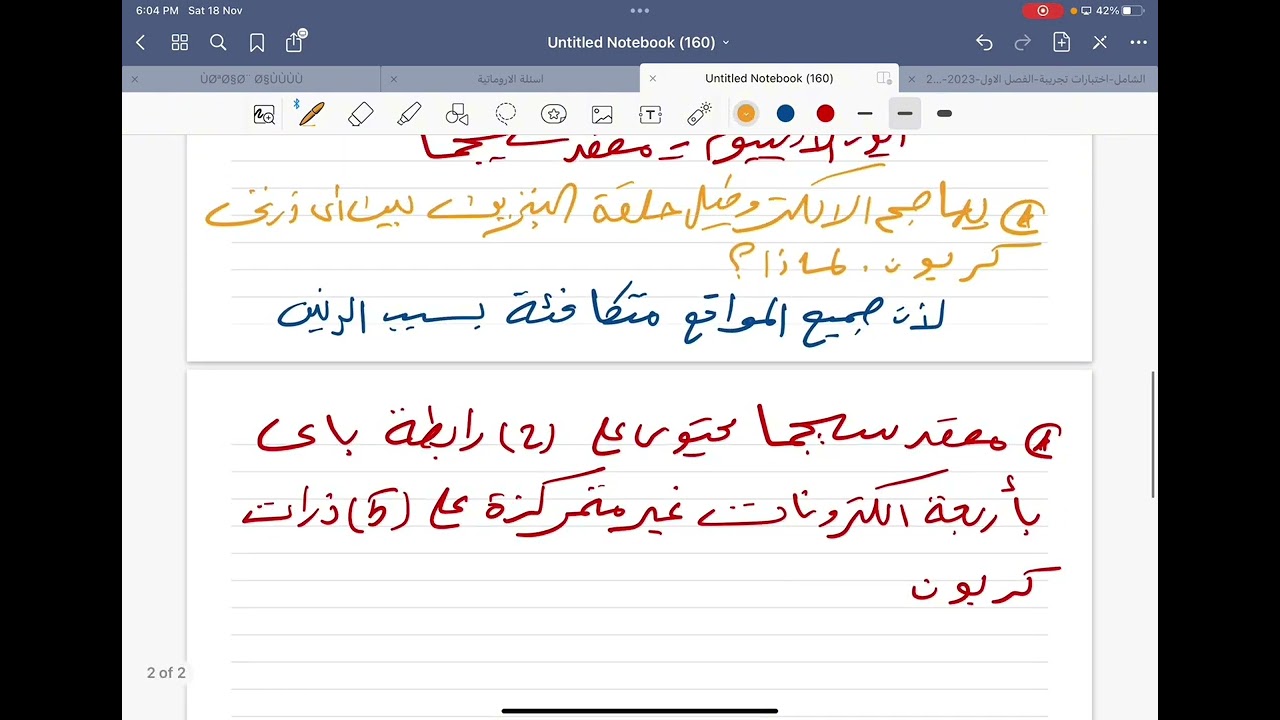 6:04 PM Sat 18 Nov
42%
Untitled Notebook (160)
ÙØªØ§Ø¨ Ø§ÙÙÙÙ
اسئلة الاروماتية
Untitled Notebook (160)
الشامل-اختبارات تجريبة-الفصل الاول-2023-2...
ايون الارينيوم = معقد سيجما
يهاجم الالكتروفيل حلقة البنزين ... أى ذرتى
كربون. لماذا؟
لأن جميع المواقع متكافئة بسبب الرنين
معقد سيجما يحتوى على (2) رابطة باى
بأربعة الكترونات غير متمركزة على (5) ذرات
كربون
2 of 2